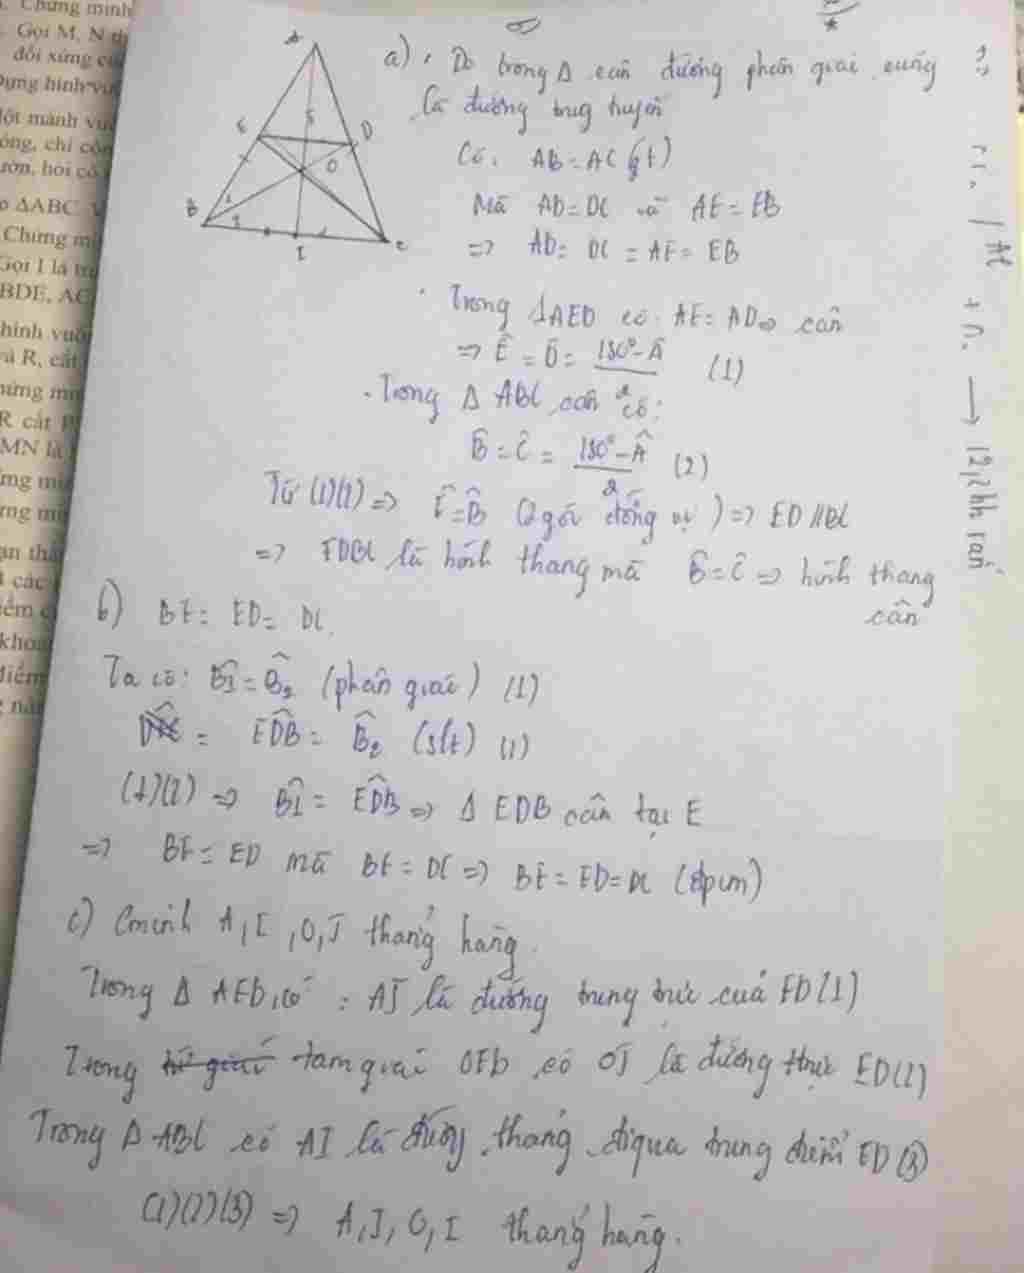 Chứng minh
Gọi M, N
đối xứng
ΔABC
Chứng
Gọi I là
BDE, AC
MN là
A
E
D
O
B
I
C
a) Do trong Δ cân đường phân giác cũng
là đường trung tuyến
Có: AB = AC (gt)
Mà AD = DC và AE = EB
=> AD = DC = AE = EB
. Trong ΔAED có AE = AD => cân
=> Ê = D̂ = (180° - Â)/2 (1)
. Trong Δ ABC cân có:
B̂ = Ĉ = (180° - Â)/2 (2)
Từ (1)(2) => Ê = B̂ (2 góc đồng vị) => ED // BC
=> EDBC là hình thang mà B̂ = Ĉ => hình thang
cân
b) BE = ED = DC.
Ta có: B̂1 = B̂2 (phân giác) (1)
= EDB̂ = B̂2 (slt) (1)
(1)(2) => B̂1 = EDB̂ => Δ EDB cân tại E
=> BE = ED mà BE = DC => BE = ED = DC (đpcm)
c) Cminh A, I, O, J thẳng hàng.
Trong Δ AED, có : AJ là đường trung trực của ED (1)
Trong tam giác OED có OJ là đường thực ED (2)
Trong Δ ABC có AI là đường thẳng điqua trung điểm ED (3)
(1)(2)(3) => A, J, O, I thẳng hàng.